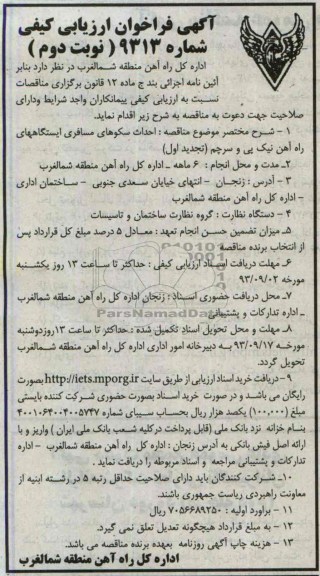 آگهی فراخوان ارزیابی کیفی
شماره ۹۳۱۳ ( نوبت دوم )
اداره کل راه آهن منطقه شمالغرب در نظر دارد بنابر
آئین نامه اجرائی بند ج ماده ۱۲ قانون برگزاری مناقصات
نسبت به ارزیابی کیفی پیمانکاران واجد شرایط ودارای
صلاحیت جهت دعوت به مناقصه به شرح زیر اقدام نماید.
۱ - شرح مختصر موضوع مناقصه : احداث سکوهای مسافری ایستگاههای
راه آهن نیک پی و سرچم (تجدید اول)
۲ـ مدت و محل انجام : ۶ ماهه ـ اداره کل راه آهن منطقه شمالغرب
۳ - آدرس : زنجـان - انتهای خیابان سعدی جنوبی - ساختمان اداری
- اداره کل راه آهن منطقه شمالغرب
۴ - دستگاه نظارت : گروه نظارت ساختمان و تاسیسات
۵ـ میزان تضمین حسن انجام تعهد : معـادل ۵ درصد مبلغ کل قرارداد پس
از انتخاب برنده مناقصه
۶ـ مهلت دریافت اسناد ارزیابی کیفی : حداکثر تا ساعت ۱۳ روز یکشنبه
مورخه ۹۳/۰۹/۰۲
۷ـ محل دریافت حضوری اسناد : زنجان اداره کل راه آهن منطقه شمالغرب
ـ اداره تدارکات و پشتیبانی
۸ـ مهلت و محل تحویل اسناد تکمیل شده : حداکثر تا ساعت ۱۳ روزدوشنبه
مورخه ۹۳/۰۹/۱۷ به دبیرخانه امور اداری اداره کل راه آهن منطقه شمالغرب
تحویل گردد.
۹ - دریافت خرید اسناد ارزیابی از طریق سایت http://iets.mporg.ir بصورت
رایگان می باشد و در صورت خرید اسناد بصورت حضوری شرکت کننده بایستی
مبلغ (۱۰۰,۰۰۰) یکصد هزار ریال بحساب سیبای شماره ۴۰۰۱۰۶۴۰۰۴۰۰۵۷۴۷
بنام خزانه نزد بانک ملی (قابل پرداخت درکلیه شعب بانک ملی ایران ) واریز و با
ارائه اصل فیش بانکی به آدرس زنجان : اداره کل راه آهن منطقه شمالغرب - اداره
تدارکات و پشتیبانی مراجعه و اسناد مربوطه را دریافت نماید .
۱۰ـ شرکت کنندگان باید دارای صلاحیت حداقل رتبه ۵ در رشته ابنیه از
معاونت راهبردی ریاست جمهوری باشند.
۱۱ - براورد اولیه : ۷۰۵۶۶۸۹۲۵۰ ریال
۱۲ - به مبلغ قرارداد هیچگونه تعدیل تعلق نمی گیرد.
۱۳ - هزینه چاپ آگهی روزنامه بعهده برنده مناقصه می باشد.
اداره کل راه آهن منطقه شمالغرب